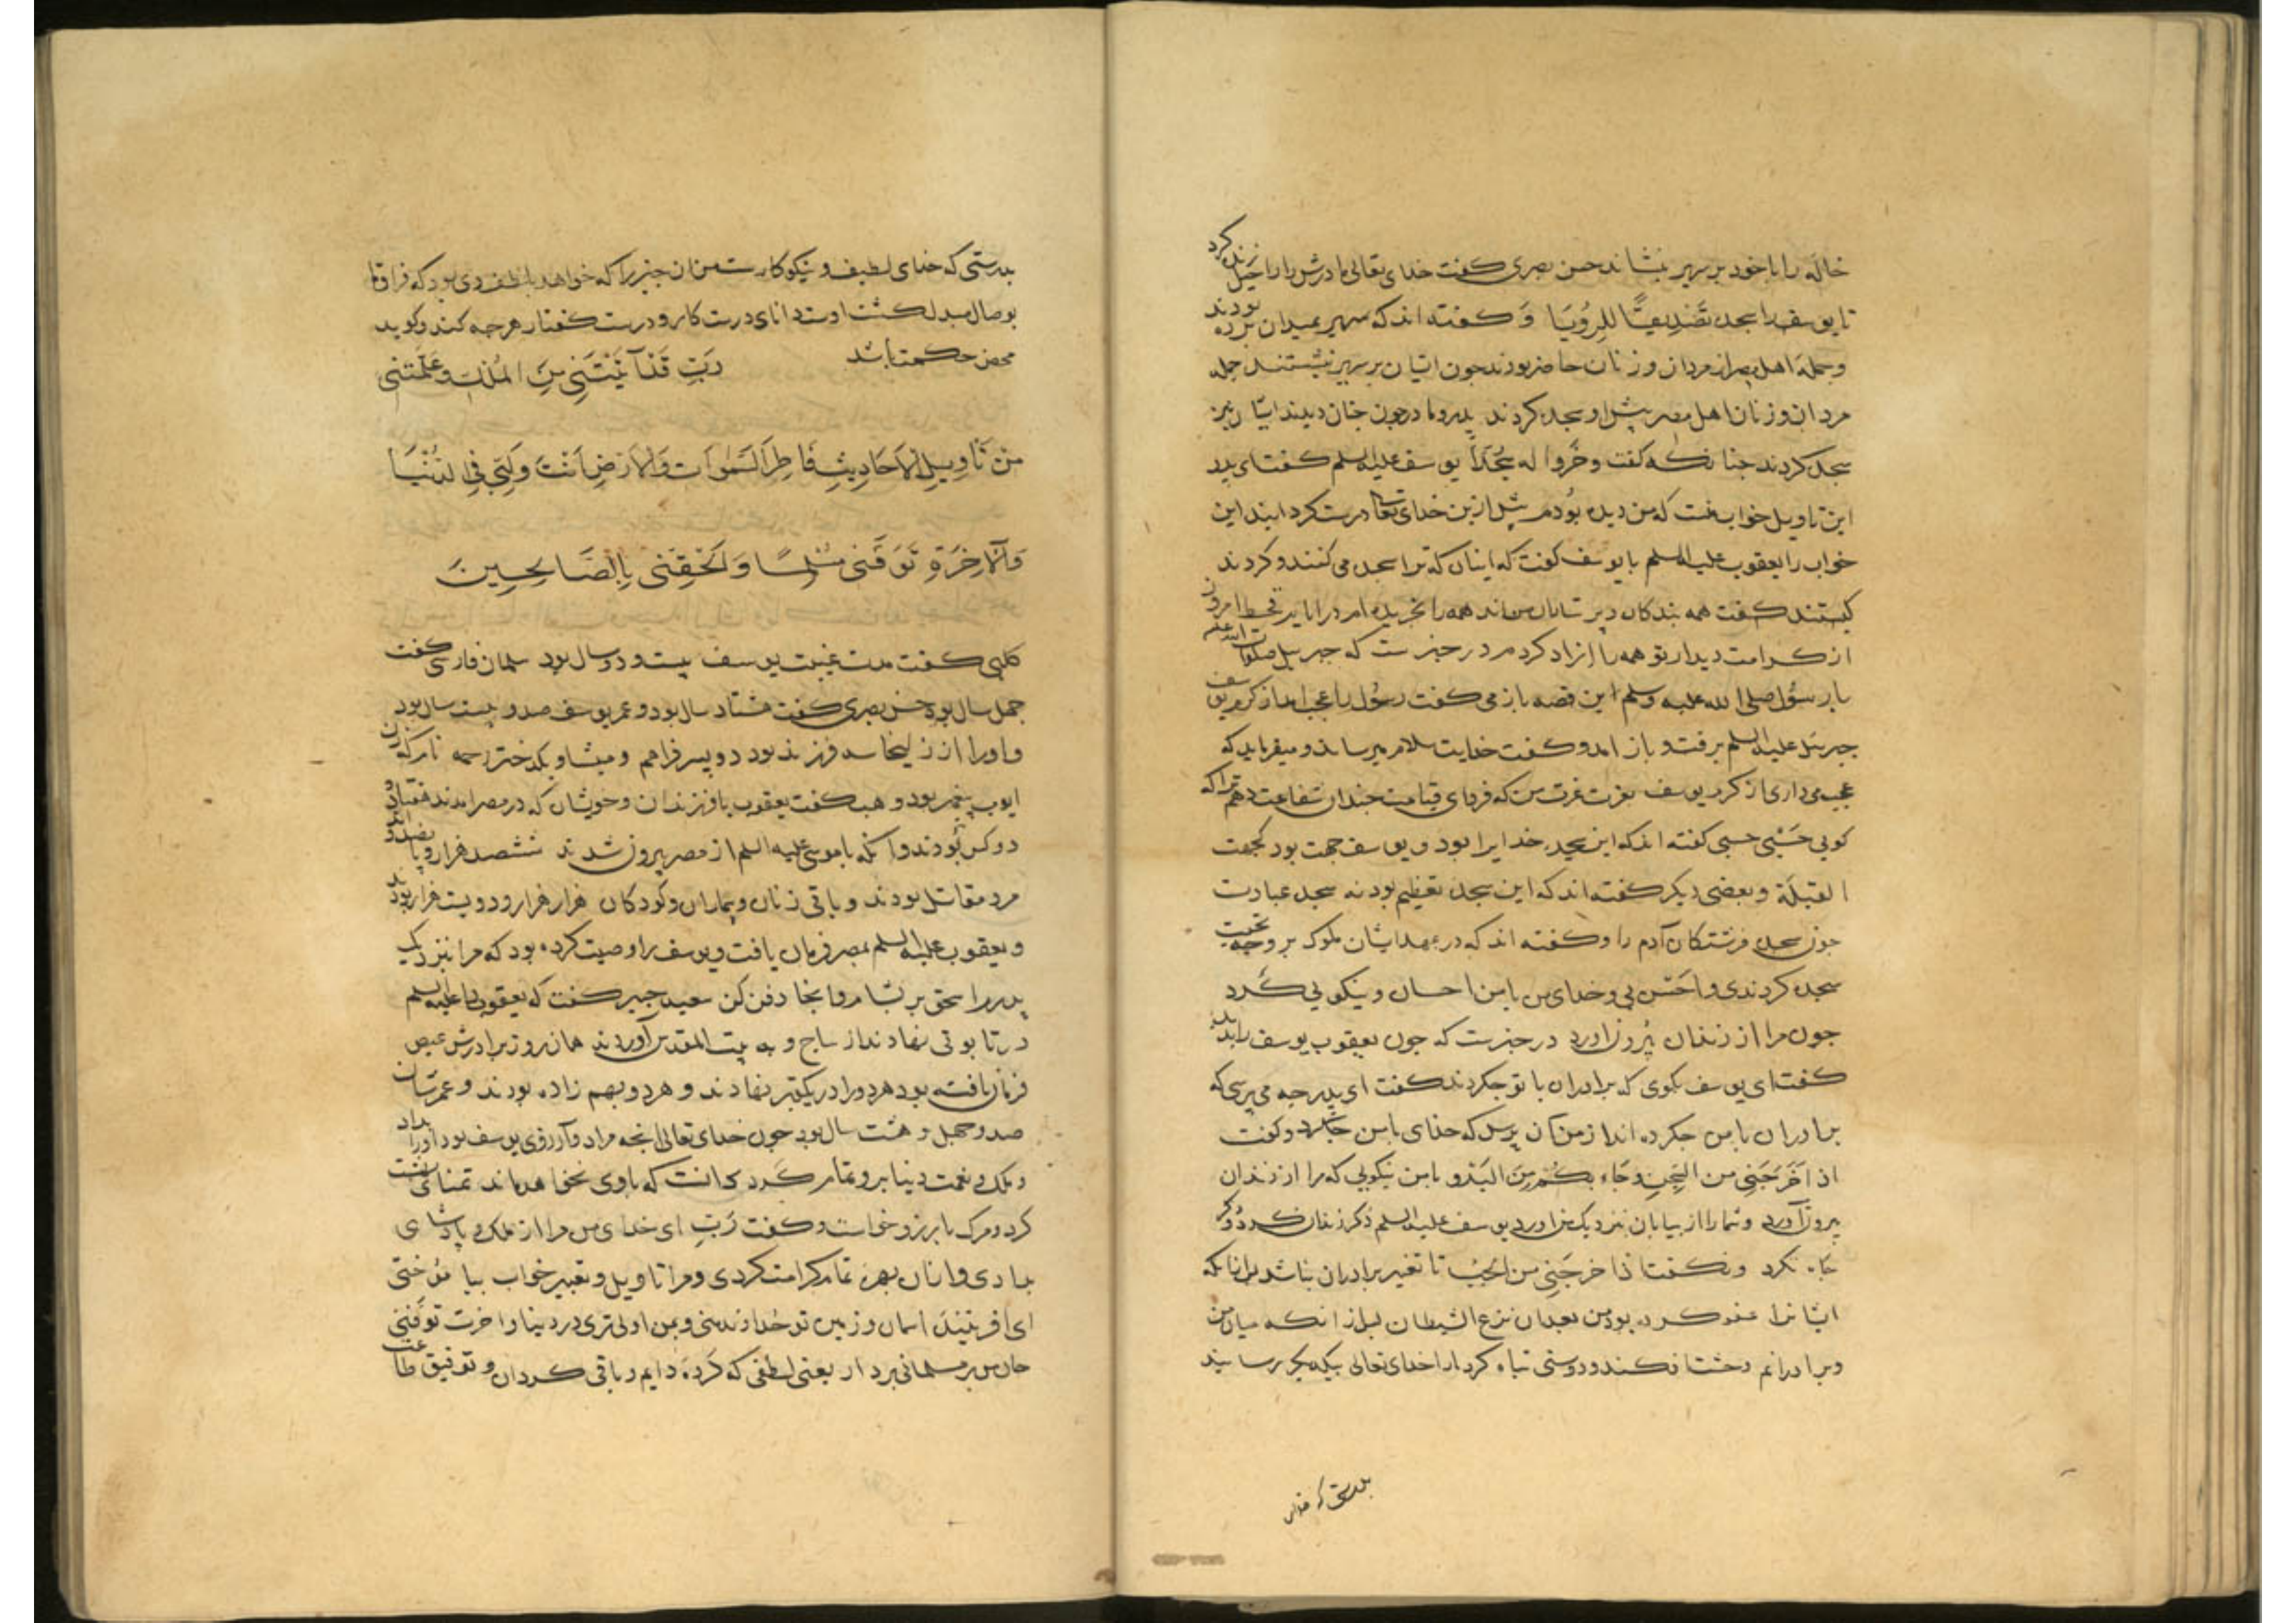 خاله را با خود بر سریر بنشاند حسن بصری کفت خدای تعالی مادرش را راحیل زنده کرد
تا یوسف را سجده تَصْدِیقًا لِلرُّؤیَا وَ کفته اند که سریر بمیدان برده بودند
و جمله اهل مصر از مردان و زنان حاضر بودند جون ایشان بر سریر نشستند جمله
مردان و زنان اهل مصر پیش او سجده کردند پدر و مادر جون جنان دیدند ایشان نیز
سجده کردند جنانکه کفت و خَرُّوا له سُجَّدًا یوسف علیه السلم کفت ای پدر
این تاویل خواب منست که من دیده بُودم پیش ازین خدای تعا درست کرد این
خواب را یعقوب علیه السلم با یوسف کفت که اینان که ترا سجده می کنند و کردند
کیستند کفت همه بندکان و پرستاران من اند همه را بخریده ام در ایام قحط امروز
از کرامت دیدار تو همه را ازاد کردم در خبرست که جبریل صلوات الله علیه
با رسُول صلی الله علیه وسلم این قصه باز می کفت رسُول را عجب امد از کرم یوسف
جبرئیل علیه السلم برفت و باز امد و کفت خدایت سلام میرساند و میفرماید که
عجب می داری از کرم یوسف بعزت عزت من که فردای قیامت جندان شفاعت دهم ترا که
کویی حَسْبِی حسبی کفته اند که این سجده خدایرا بود و یوسف جهت بود کجهت
القبلَة و بعضی دیکر کفته اند که این سجده تعظیم بود نه سجده عبادت
جون سجده فرشتکان آدم را و کفته اند که در عهد ایشان ملوک بر وجه تحیت
سجده کردندی و احَسَن بی و خدای من با من احسان و نیکویی کَرد
جون مرا از زندان بیُرون اورد در خبرست که جون یعقوب یوسف را بدید
کفت ای یوسف بکوی که برادران با تو جکردند کفت ای پدر جه می پرسی که
برادران با من جکرده اند از من آن پرس که خدای با من جکرد و کفت
اذ اَخْرَجَنِی من السِّجنِ وَ جَاء بِکُم مِنَ البَدْوِ با من نیکویی که مرا از زندان
بیرون آورد و شما را از بیابان نزدیک من اورد یوسف علیه السلم ذکر زندان کرد و ذکر
جاه نکرد و نکفت اذا خرجَنِی من الجُبِّ تا تغیر برادران نباشد برانکه
ایشانرا عفو کرده بود من بعد ان نزغ الشیطان پس از انکه میان من
و برادرانم وحشت افکند و دوستی تباه کرد ما را خدای تعالی بیکدیکر رسانید
بدرستی که خدای
بدرستی که خدای لطیف و نیکوکارست من ان جیز را که خواهد بلطف وی بود که فراق ما
بوصال مبدل کشت اوست دانای درست کار و درست کفتار هر جه کند و کوید
محض حکمت باشد رَبِّ قَدْ آتَیْتَنِی مِنَ المُلْکِ وَ عَلَّمْتَنِی
مِنْ تَأویلِ الاَحَادِیثِ فَاطِرَ السَّمٰوَات وَ الاَرْضِ اَنْتَ وَلِیِّ فِی الدُّنْیَا
وَ الآخِرَةِ تَوَفَّنِی مُسْلِمًا وَ اَلْحِقْنِی بِالصَّالِحِینَ
کلبی کفت مدت غیبت یوسف بیست و دو سال بود سلمان فارسی کفت
جهل سال بود حسن بصری کفت هشتاد سال بود و عمر یوسف صد و بیست سال بود
و او را از زلیخا سه فرزند بود دو پسر افراهم و میشا و یکدختر رحمه نام که زن
ایوب پیغمبر بود و وهب کفت یعقوب با فرزندان و خویشان که در مصر امدند هفتاد و
دو کس بُودند و انکه با موسی علیه السلم از مصر بیرون شدند ششصد هزار و پانصد و اند
مرد مقاتل بودند و باقی زنان و بیماران و کودکان هزار هزار و دویست هزار بود
و یعقوب علیه السلم بمصر فرمان یافت و یوسف را وصیت کرده بود که مرا نزدیک
پدرم اسحق بر بشام و انجا دفن کن سعید جبیر کفت که یعقوب را علیه السلم
در تابوتی نهادند از ساج و به بیت المقدس آوردند همان روز برادرش عیص
فرمان یافته بود هر دو را در یکقبر نهادند و هر دو بهم زاده بودند و عمرشان
صد و جهل و هشت سال بود جون خدای تعالی انجه مراد و آرزوی یوسف بود او را بداد
و ملک و نعمت دینا برو تمام کَرد دانست که با وی نخواهد ماند تمنای بهشت
کرد و مرک بارزو خواست و کفت رَبِّ ای خدای من مرا از ملک و پادشاهی
بدادی و ازان بهره تمام کرامت کردی و مرا تاویل و تعبیر خواب بیاموختی
ای افریننده اسمان و زمین تو خداوند منی و بمن اولی تری در دینا و اخرت تَوَفَّنِی
جان من بر مسلمانی بردار یعنی لطفی که کَردهٔ دایم و باقی کردان و توفیق طاعت